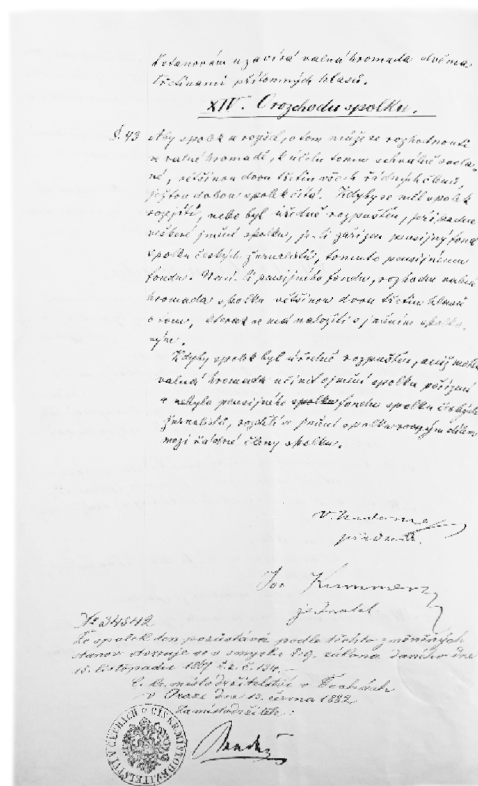 uzavírá valná hromada dvěma
třetinami přítomných hlasů.
XIV. O rozchodu spolku.
§. 43 Aby spolek se rozešel, o tom může se rozhodnouti
ve valné hromadě, k účelu tomu zvláště svola-
né, většinou dvou třetin všech řádných členů,
jež tou dobou spolek čítá. Kdyby se měl spolek
rozejíti, nebo byl úředně rozpuštěn, připadne
veškeré jmění spolku, je-li zařízen pensijný fond
spolku českých žurnalistů, tomuto pensijnímu
fondu. Není-li pensijního fondu, rozhodne valná
hromada spolku většinou dvou třetin hlasů
o tom, kterak se má naložiti s jměním spolko-
vým.
Kdyby spolek byl úředně rozpuštěn, aniž mohla
valná hromada učiniti o jmění spolku pořízení
a nebylo pensijního fondu spolku českých
žurnalistů, rozdělí se jmění spolku rovným dílem
mezi členy spolku.
předseda.
Jos. Kummer
jednatel
№ 34542
Že spolek ten pozůstává podle těchto změněných
stanov stvrzuje se ve smyslu § 9. zákona daného dne
15. listopadu 1867 č. ř. z. 134.
C. kr. místodržitelství v Čechách
v Praze dne 13. června 1882
Za místodržitele: